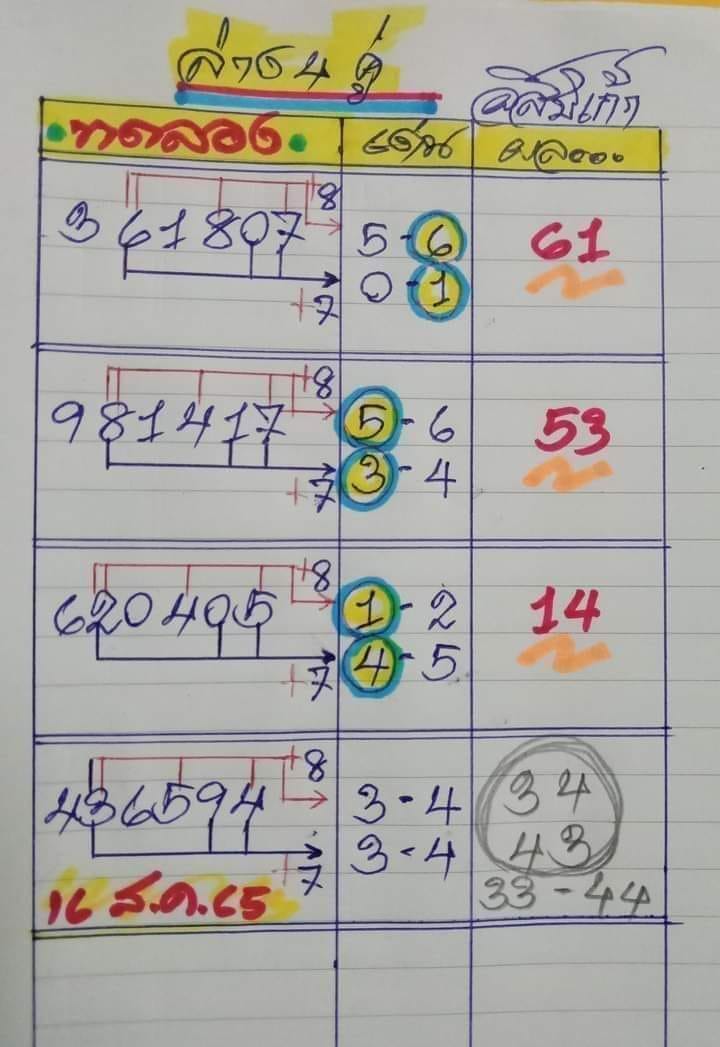 ล่าง 4 คู่
อีสปีเก้า
ทดลอง เด่น ผล...
+8
361807 5-6 61
0-1
+7
+8
981417 5-6 53
3-4
+7
+8
620405 1-2 14
4-5
+7
+8
436594 3-4 34
3-4 43
+7
16 ส.ค.65 33-44